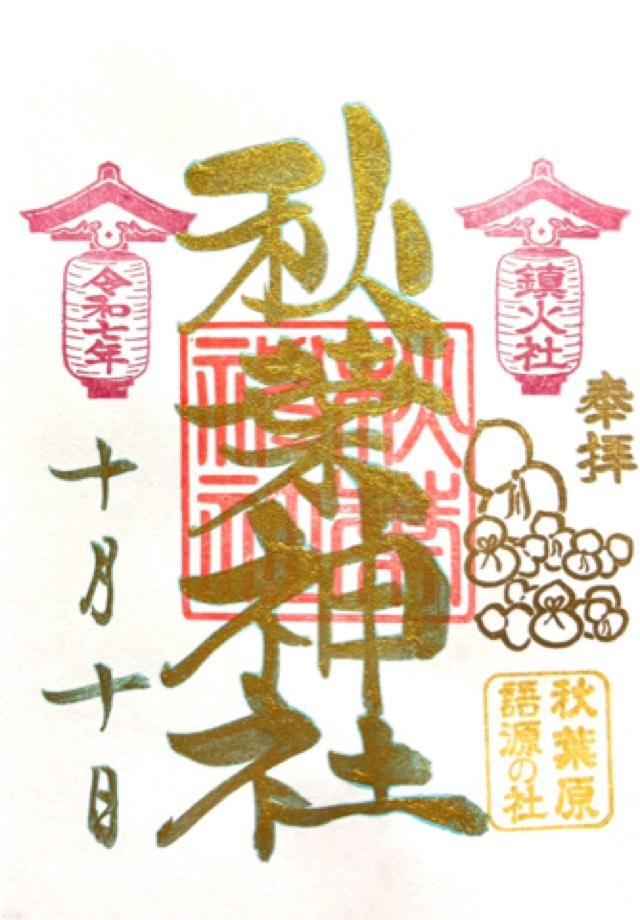 鎮火社
奉拝
秋葉原
語源の社
秋葉神社
秋葉
神社
令和七年
十月十日